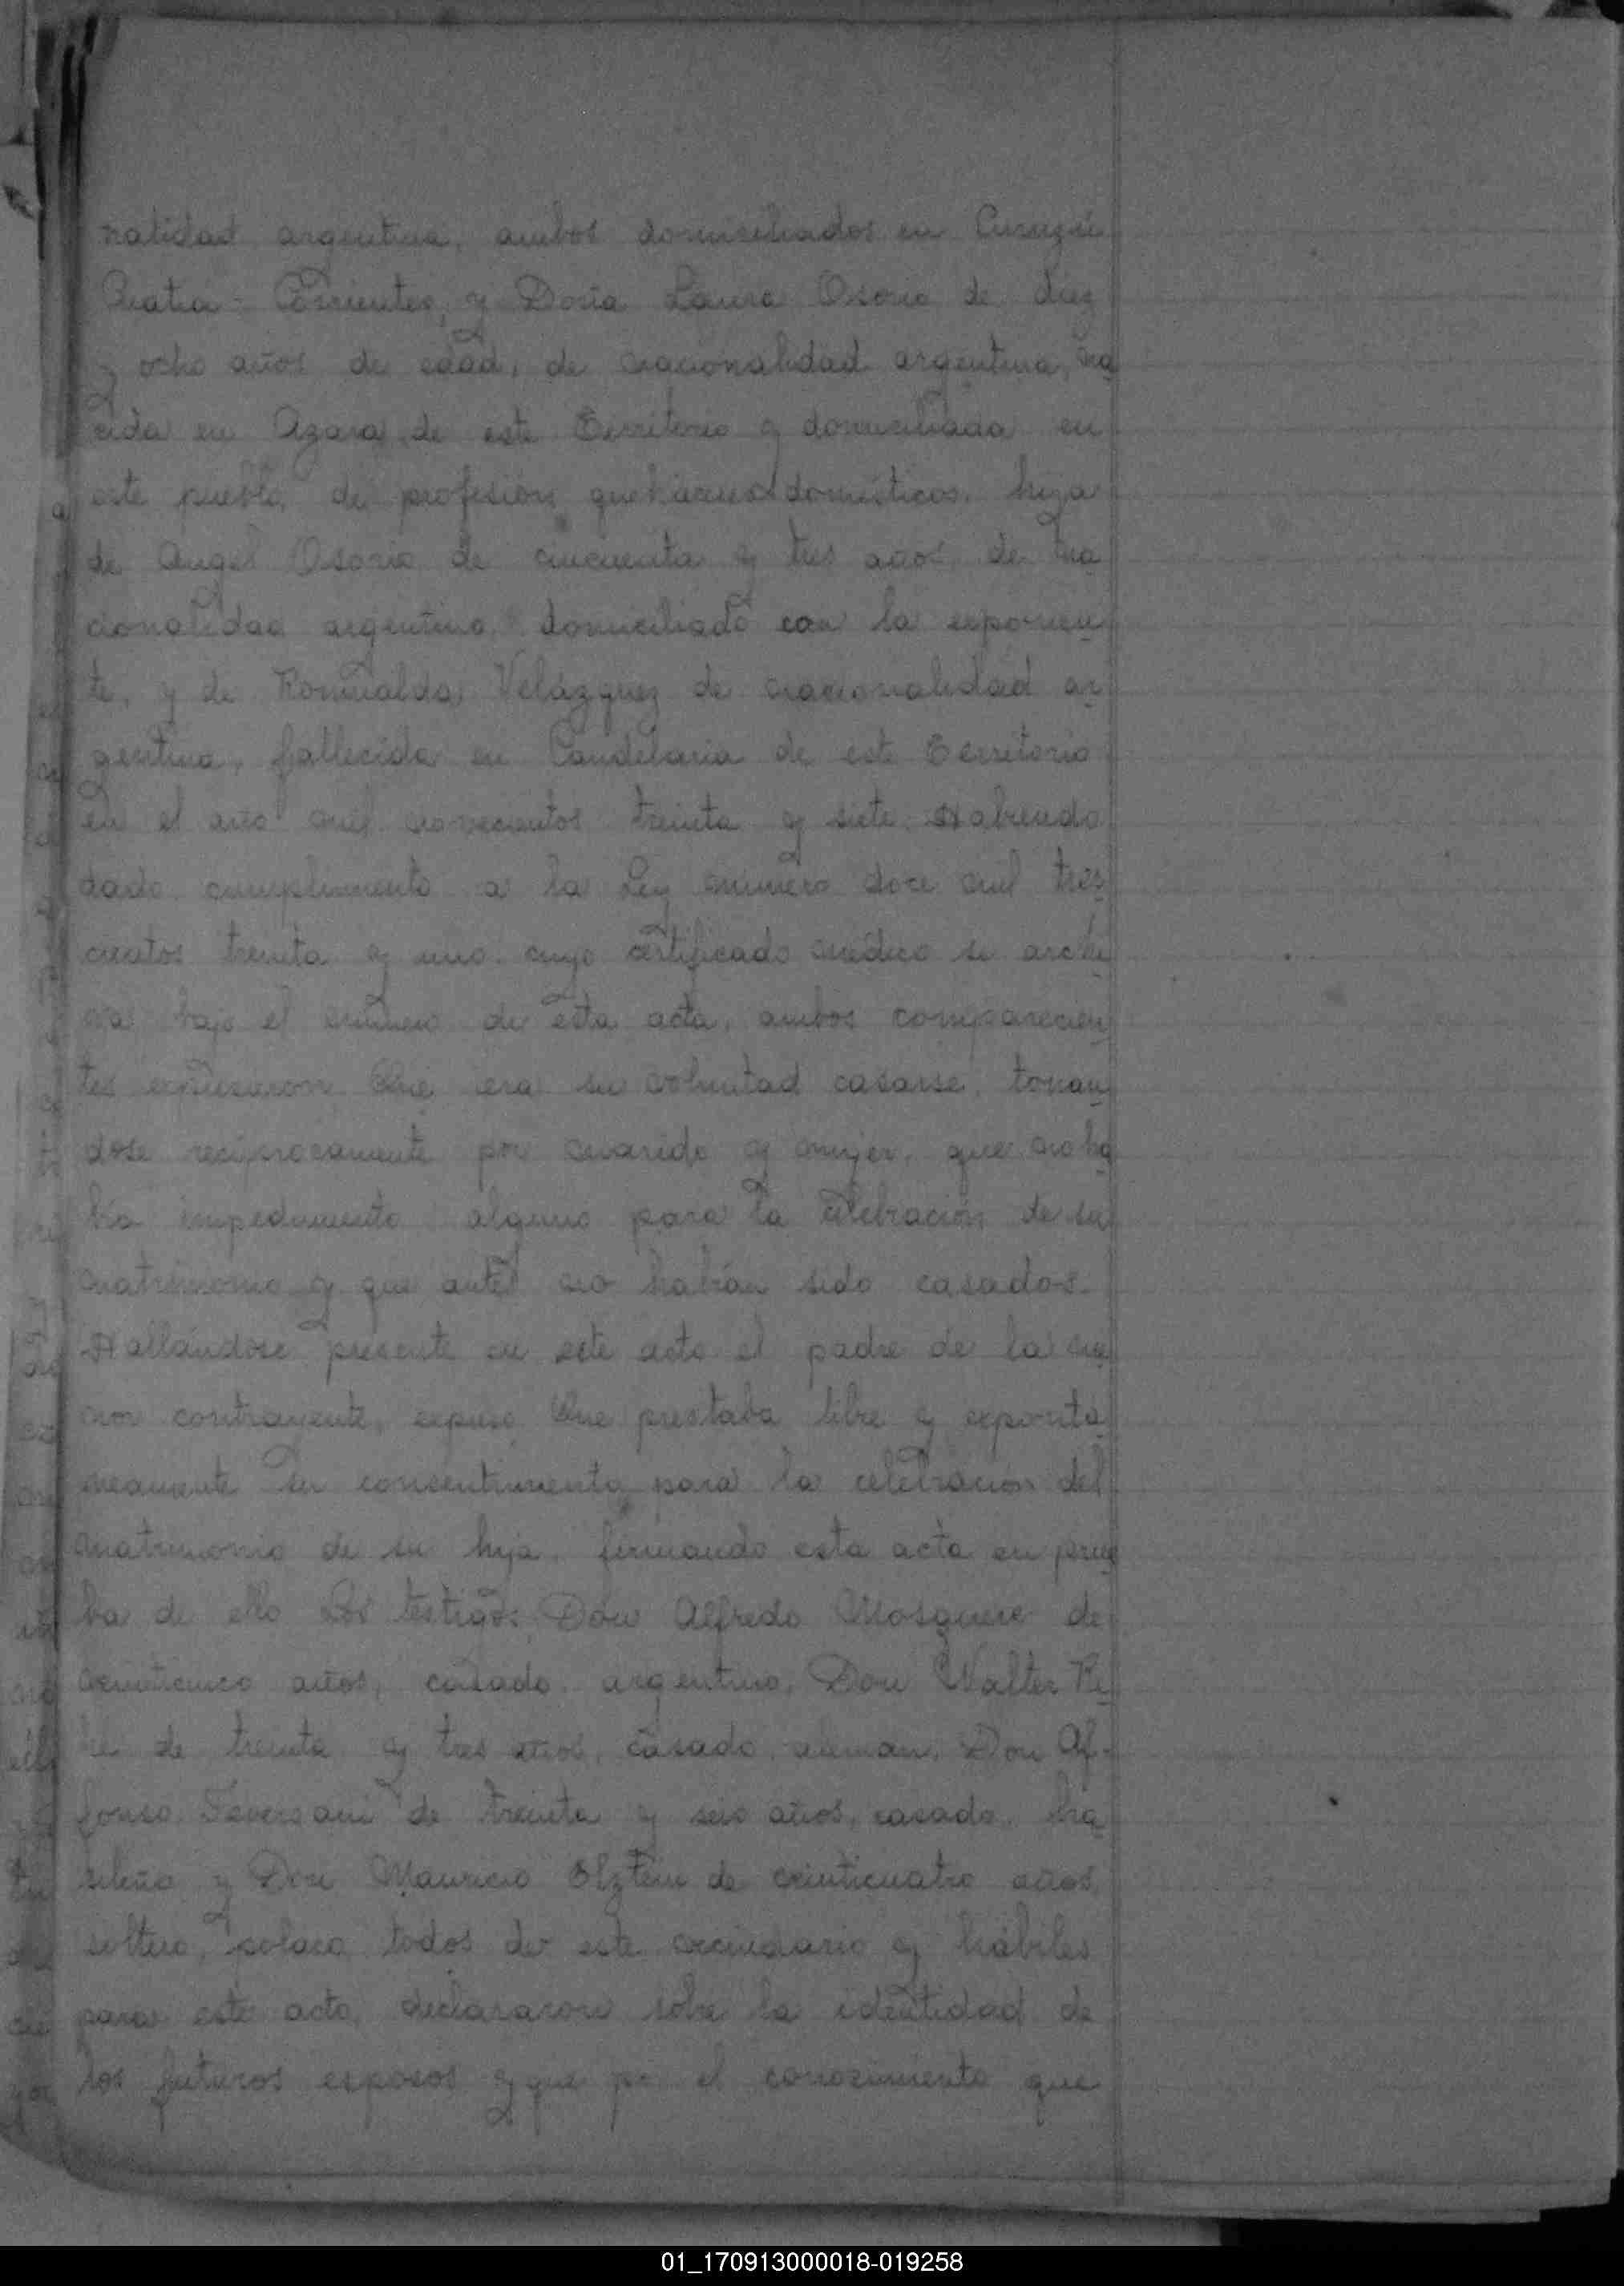 nalidad argentina, ambos domiciliados en Curuzú
Cuatiá - Corrientes, y Doña Laura Osorio de diez
y ocho años de edad, de nacionalidad argentina, na
cida en Azara de este Territorio y domiciliada en
este pueblo, de profesión quehaceres domésticos, hija
de Angel Osorio de cincuenta y tres años, de na
cionalidad argentino, domiciliado con la exponen
te, y de Romualda Velázquez de nacionalidad ar
gentina, fallecida en Candelaria de este Territorio
en el año mil novecientos treinta y siete. Habiendo
dado cumplimento a la Ley número doce mil tres
cientos treinta y uno cuyo certificado médico se archi
va bajo el número de esta acta, ambos comparecien
tes expresaron Que era su voluntad casarse, toman
dose reciprocamente por marido y mujer, que no ha
bia impedimento alguno para la celebración de su
matrimonio y que antes no habían sido casados.
Hallándose presente en este acto el padre de la me
nor contrayente, expuso Que prestaba libre y exponta
neamente su consentimento para la celebración del
matrimonio de su hija, firmando esta acta en prue
ba de ello Los testigos Don Alfredo Mosquera de
veinticinco años, casado, argentino, Don Walter
de treinta y tres años, casado, aleman, Don Al-
fonso de treinta y seis años, casado, bra
sileño y Don Mauricio de veinticuatro años,
soltero, polaco, todos de este vecindario y hábiles
para este acto, declararon sobre la identidad de
los futuros esposos y que por el conocimiento que
01_170913000018-019258